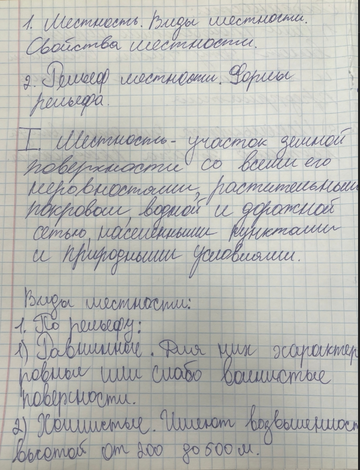 1. Местность. Виды местности.
Свойства местности.
2. Рельеф местности. Формы
рельефа.
I Местность - участок земной
поверхности со всеми его
неровностями, растительным
покровом, водной и дорожной
сетью, населёнными пунктами
и природными условиями.
Виды местности:
1. По рельефу:
1) Равнинные. Для них характер
ровные или слабо волнистые
поверхности.
2) Холмистые. Имеют возвышенност
высотой от 200 до 500 м.